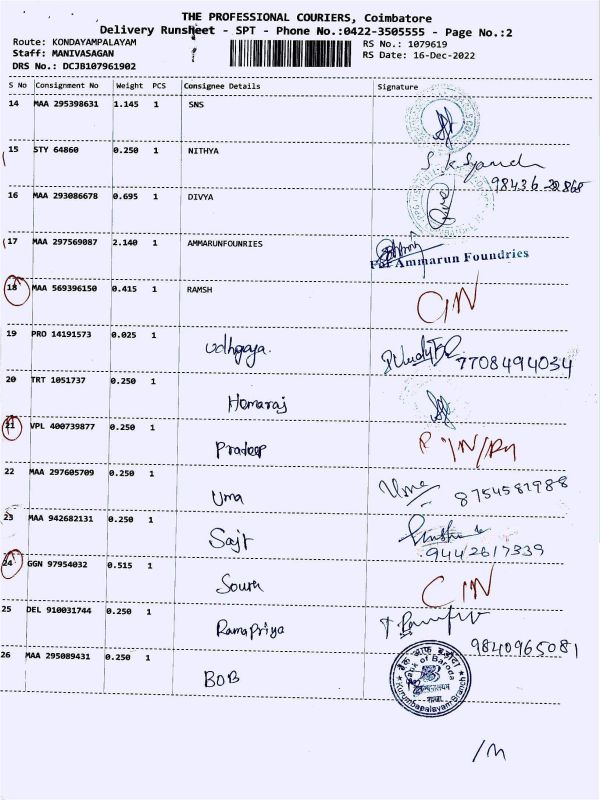 THE PROFESSIONAL COURIERS, Coimbatore
Delivery Runsheet - SPT - Phone No.:0422-3505555 - Page No.:2
Route: KONDAYAMPALAYAM
Staff: MANIVASAGAN
DRS No.: DCJB107961902
RS No.: 1079619
RS Date: 16-Dec-2022
S No Consignment No Weight PCS Consignee Details Signature
14 MAA 295398631 1.145 1 SNS
15 STY 64860 0.250 1 NITHYA
98436 28865
16 MAA 293086678 0.695 1 DIVYA
17 MAA 297569087 2.140 1 AMMARUNFOUNRIES
For Ammarun Foundries
18 MAA 569396150 0.415 1 RAMSH
19 PRO 14191573 0.025 1 Udhyaya. 7708494034
20 TRT 1051737 0.250 1 Homaraj
21 VPL 400739877 0.250 1 Pradeep
22 MAA 297605709 0.250 1 Uma Uma 8754581988
23 MAA 942682131 0.250 1 Sajt
9442617339
24 GGN 97954032 0.515 1 Sourn
25 DEL 910031744 0.250 1 Ramapriya
9840965081
26 MAA 295089431 0.250 1 BOB
बैंक ऑफ़ बड़ौदा
Bank of Baroda
Kurumbapalayam Branch